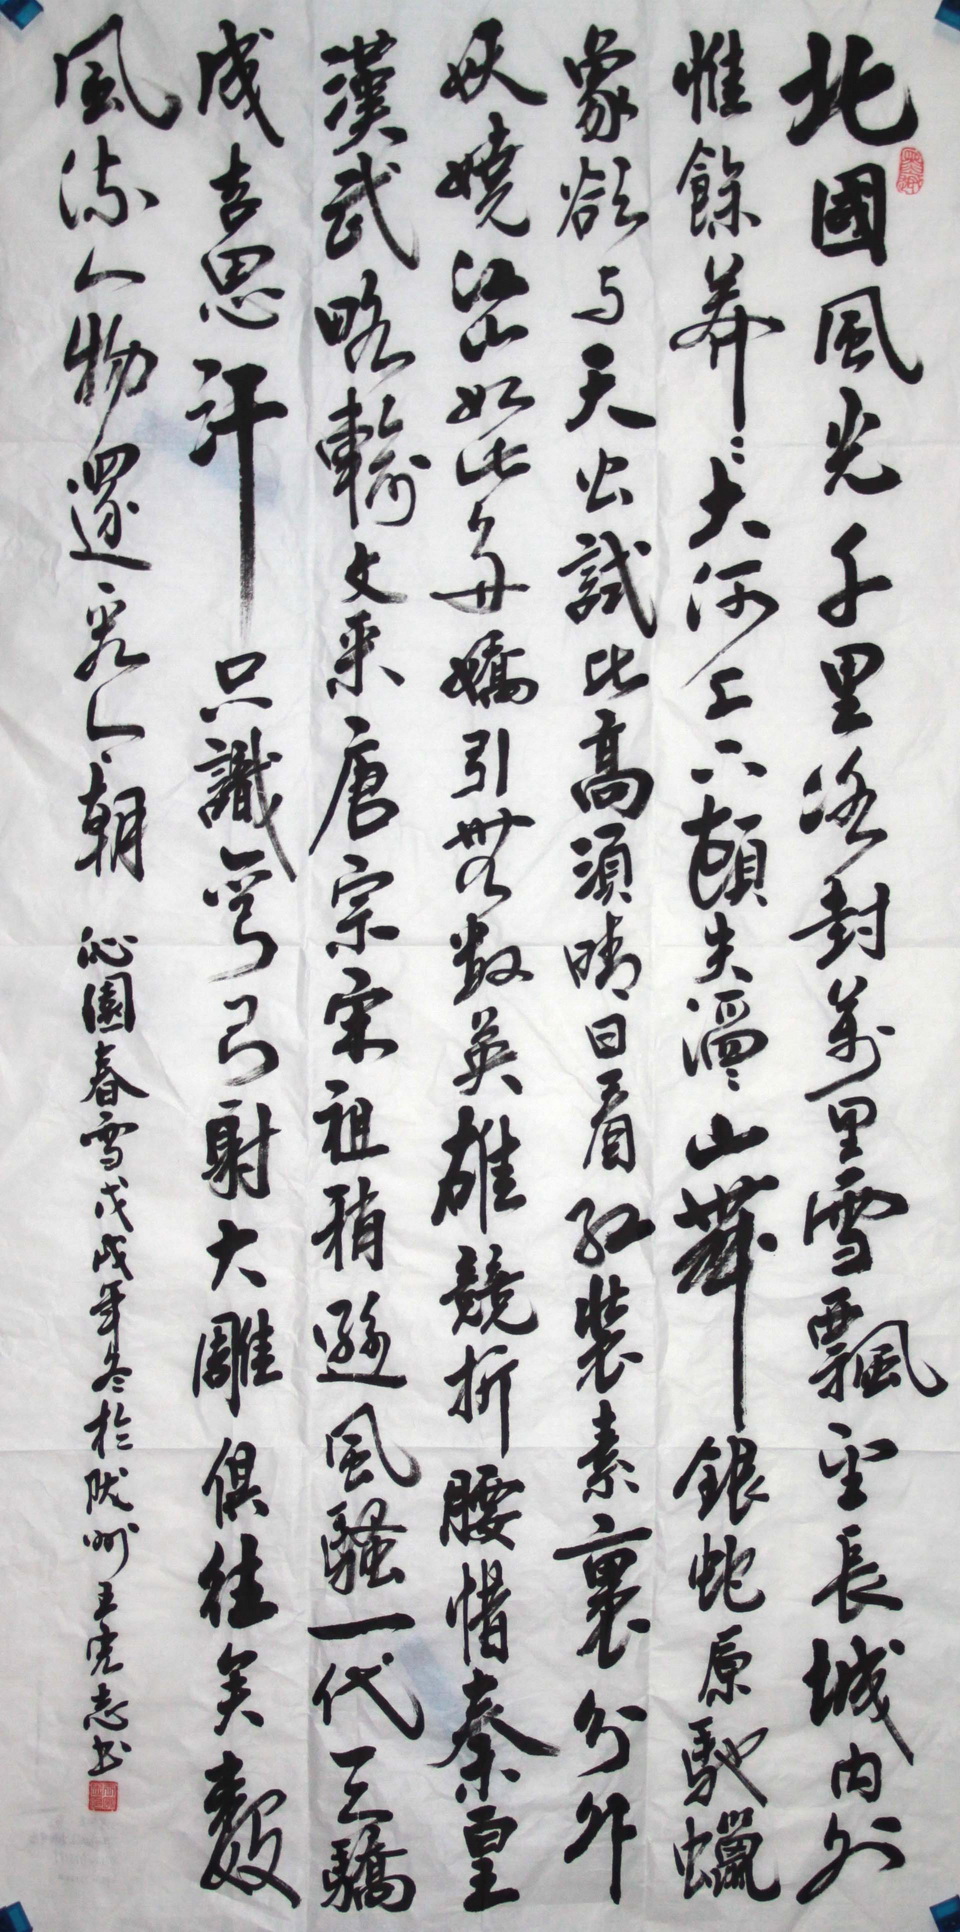 北國風光千里冰封萬里雪飄望長城內外
惟餘莽〻大河上下頓失滔〻山舞銀蛇原馳蠟
象欲与天公試比高須晴日看紅裝素裹分外
妖嬈江山如此多嬌引無数英雄競折腰惜秦皇
漢武略輸文采唐宗宋祖稍遜風騷一代天驕
成吉思汗只識彎弓射大雕俱往矣數
風流人物還看今朝 沁園春雪戊戌年冬於陇州王宪志书